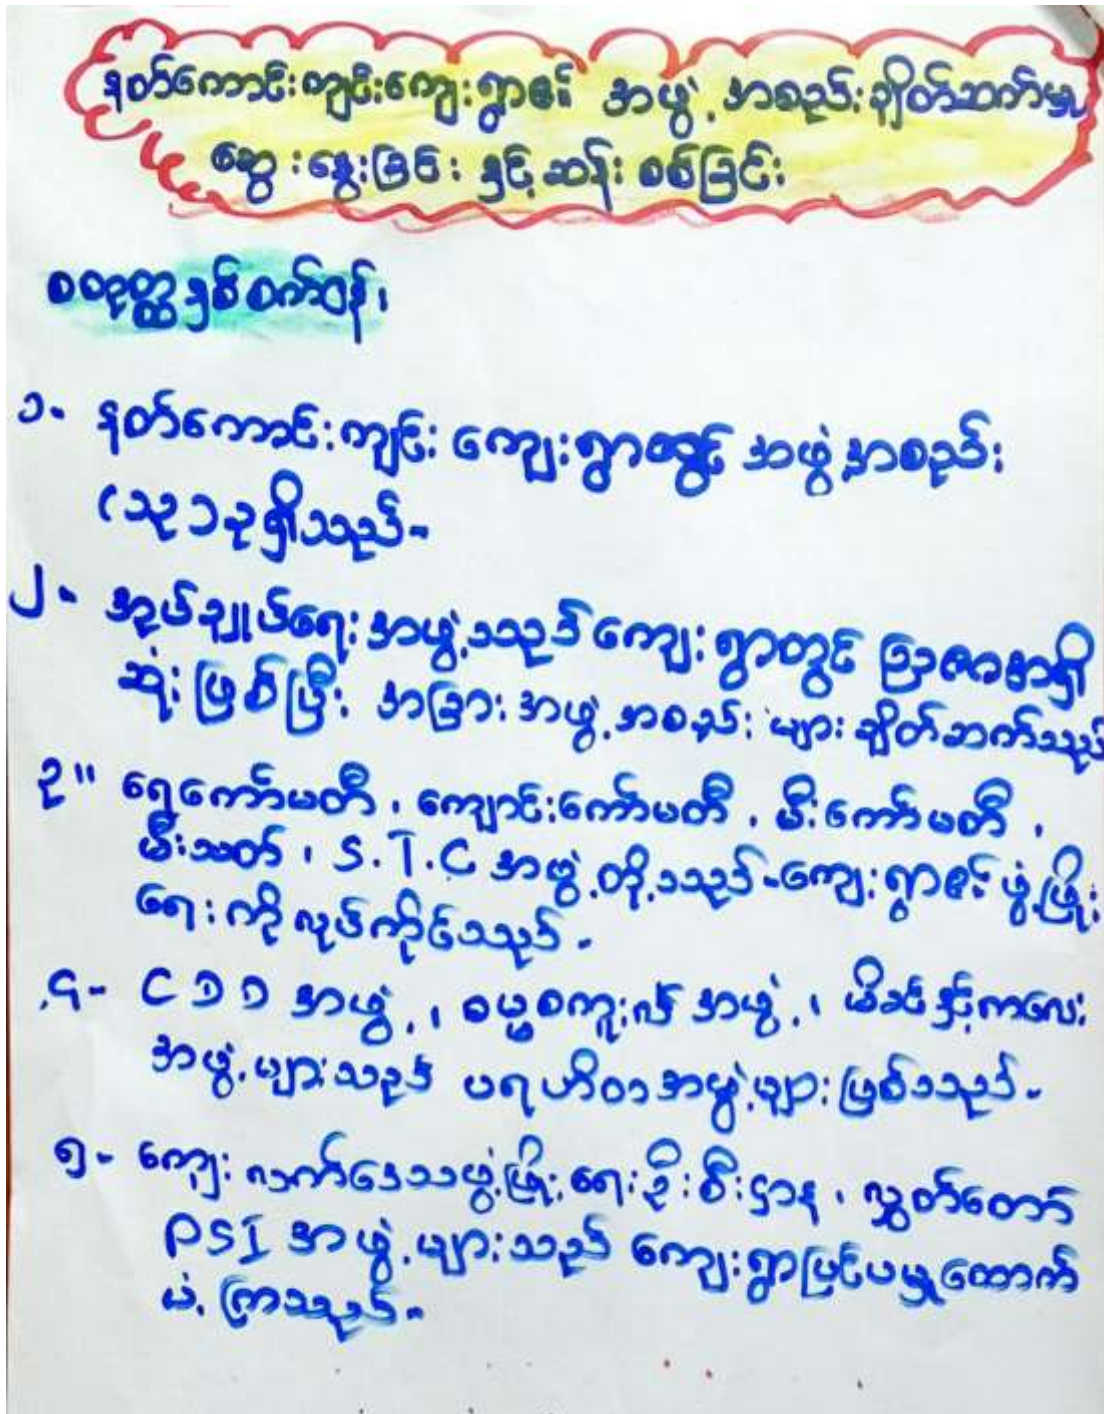 နတ်ကောင်းကျင်းကျေးရွာ၏ အဖွဲ့အစည်းချိတ်ဆက်မှု
ဆွေးနွေးခြင်း နှင့်ဆန်းစစ်ခြင်း
စတုတ္ထနှစ်ဝက်ဝန်၊
၁- နတ်ကောင်းကျင်း ကျေးရွာတွင် အဖွဲ့အစည်း
(၁၃)ခုရှိသည်-
၂- အုပ်ချုပ်ရေးအဖွဲ့သည် ကျေးရွာတွင် ဩဇာအရှိ
ဆုံးဖြစ်ပြီး အခြားအဖွဲ့အစည်းများချိတ်ဆက်သည်
၃။ ရေကော်မတီ၊ ကျောင်းကော်မတီ၊ မီးကော်မတီ၊
မီးသတ်၊ S.T.C အဖွဲ့တို့သည်-ကျေးရွာ၏ ဖွံ့ဖြိုး
ရေးကိုလုပ်ကိုင်သည်-
၄- CDD အဖွဲ့၊ ဓမ္မစကူးလ် အဖွဲ့၊ မိခင်နှင့်ကလေး
အဖွဲ့များသည် ပရဟိတအဖွဲ့များဖြစ်သည်-
၅- ကျေးလက်ဒေသဖွံ့ဖြိုးရေးဦးစီးဌာန၊ လွှတ်တော်
PSI အဖွဲ့များသည် ကျေးရွာပြင်ပမှထောက်
ပံ့ကြသည်-